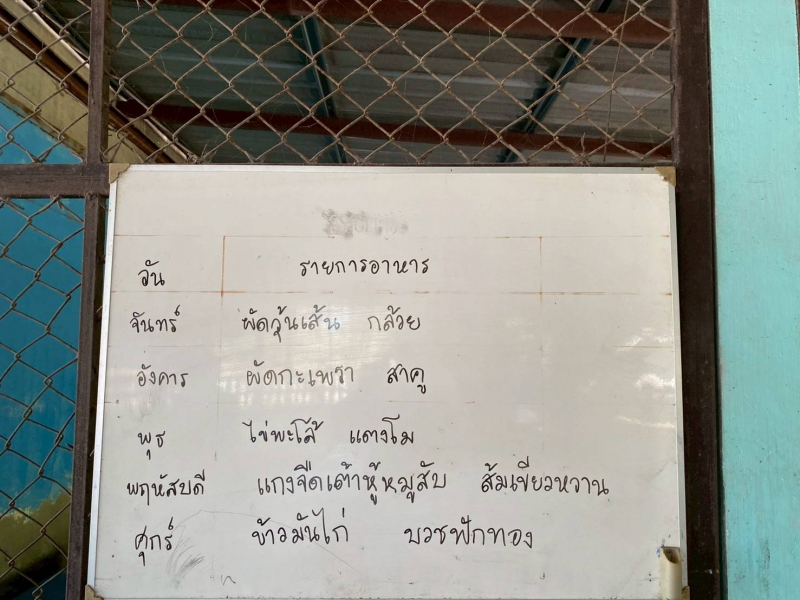 วัน รายการอาหาร
จันทร์ ผัดวุ้นเส้น กล้วย
อังคาร ผัดกะเพรา สาคู
พุธ ไข่พะโล้ แตงโม
พฤหัสบดี แกงจืดเต้าหู้หมูสับ ส้มเขียวหวาน
ศุกร์ ข้าวมันไก่ บวชฟักทอง